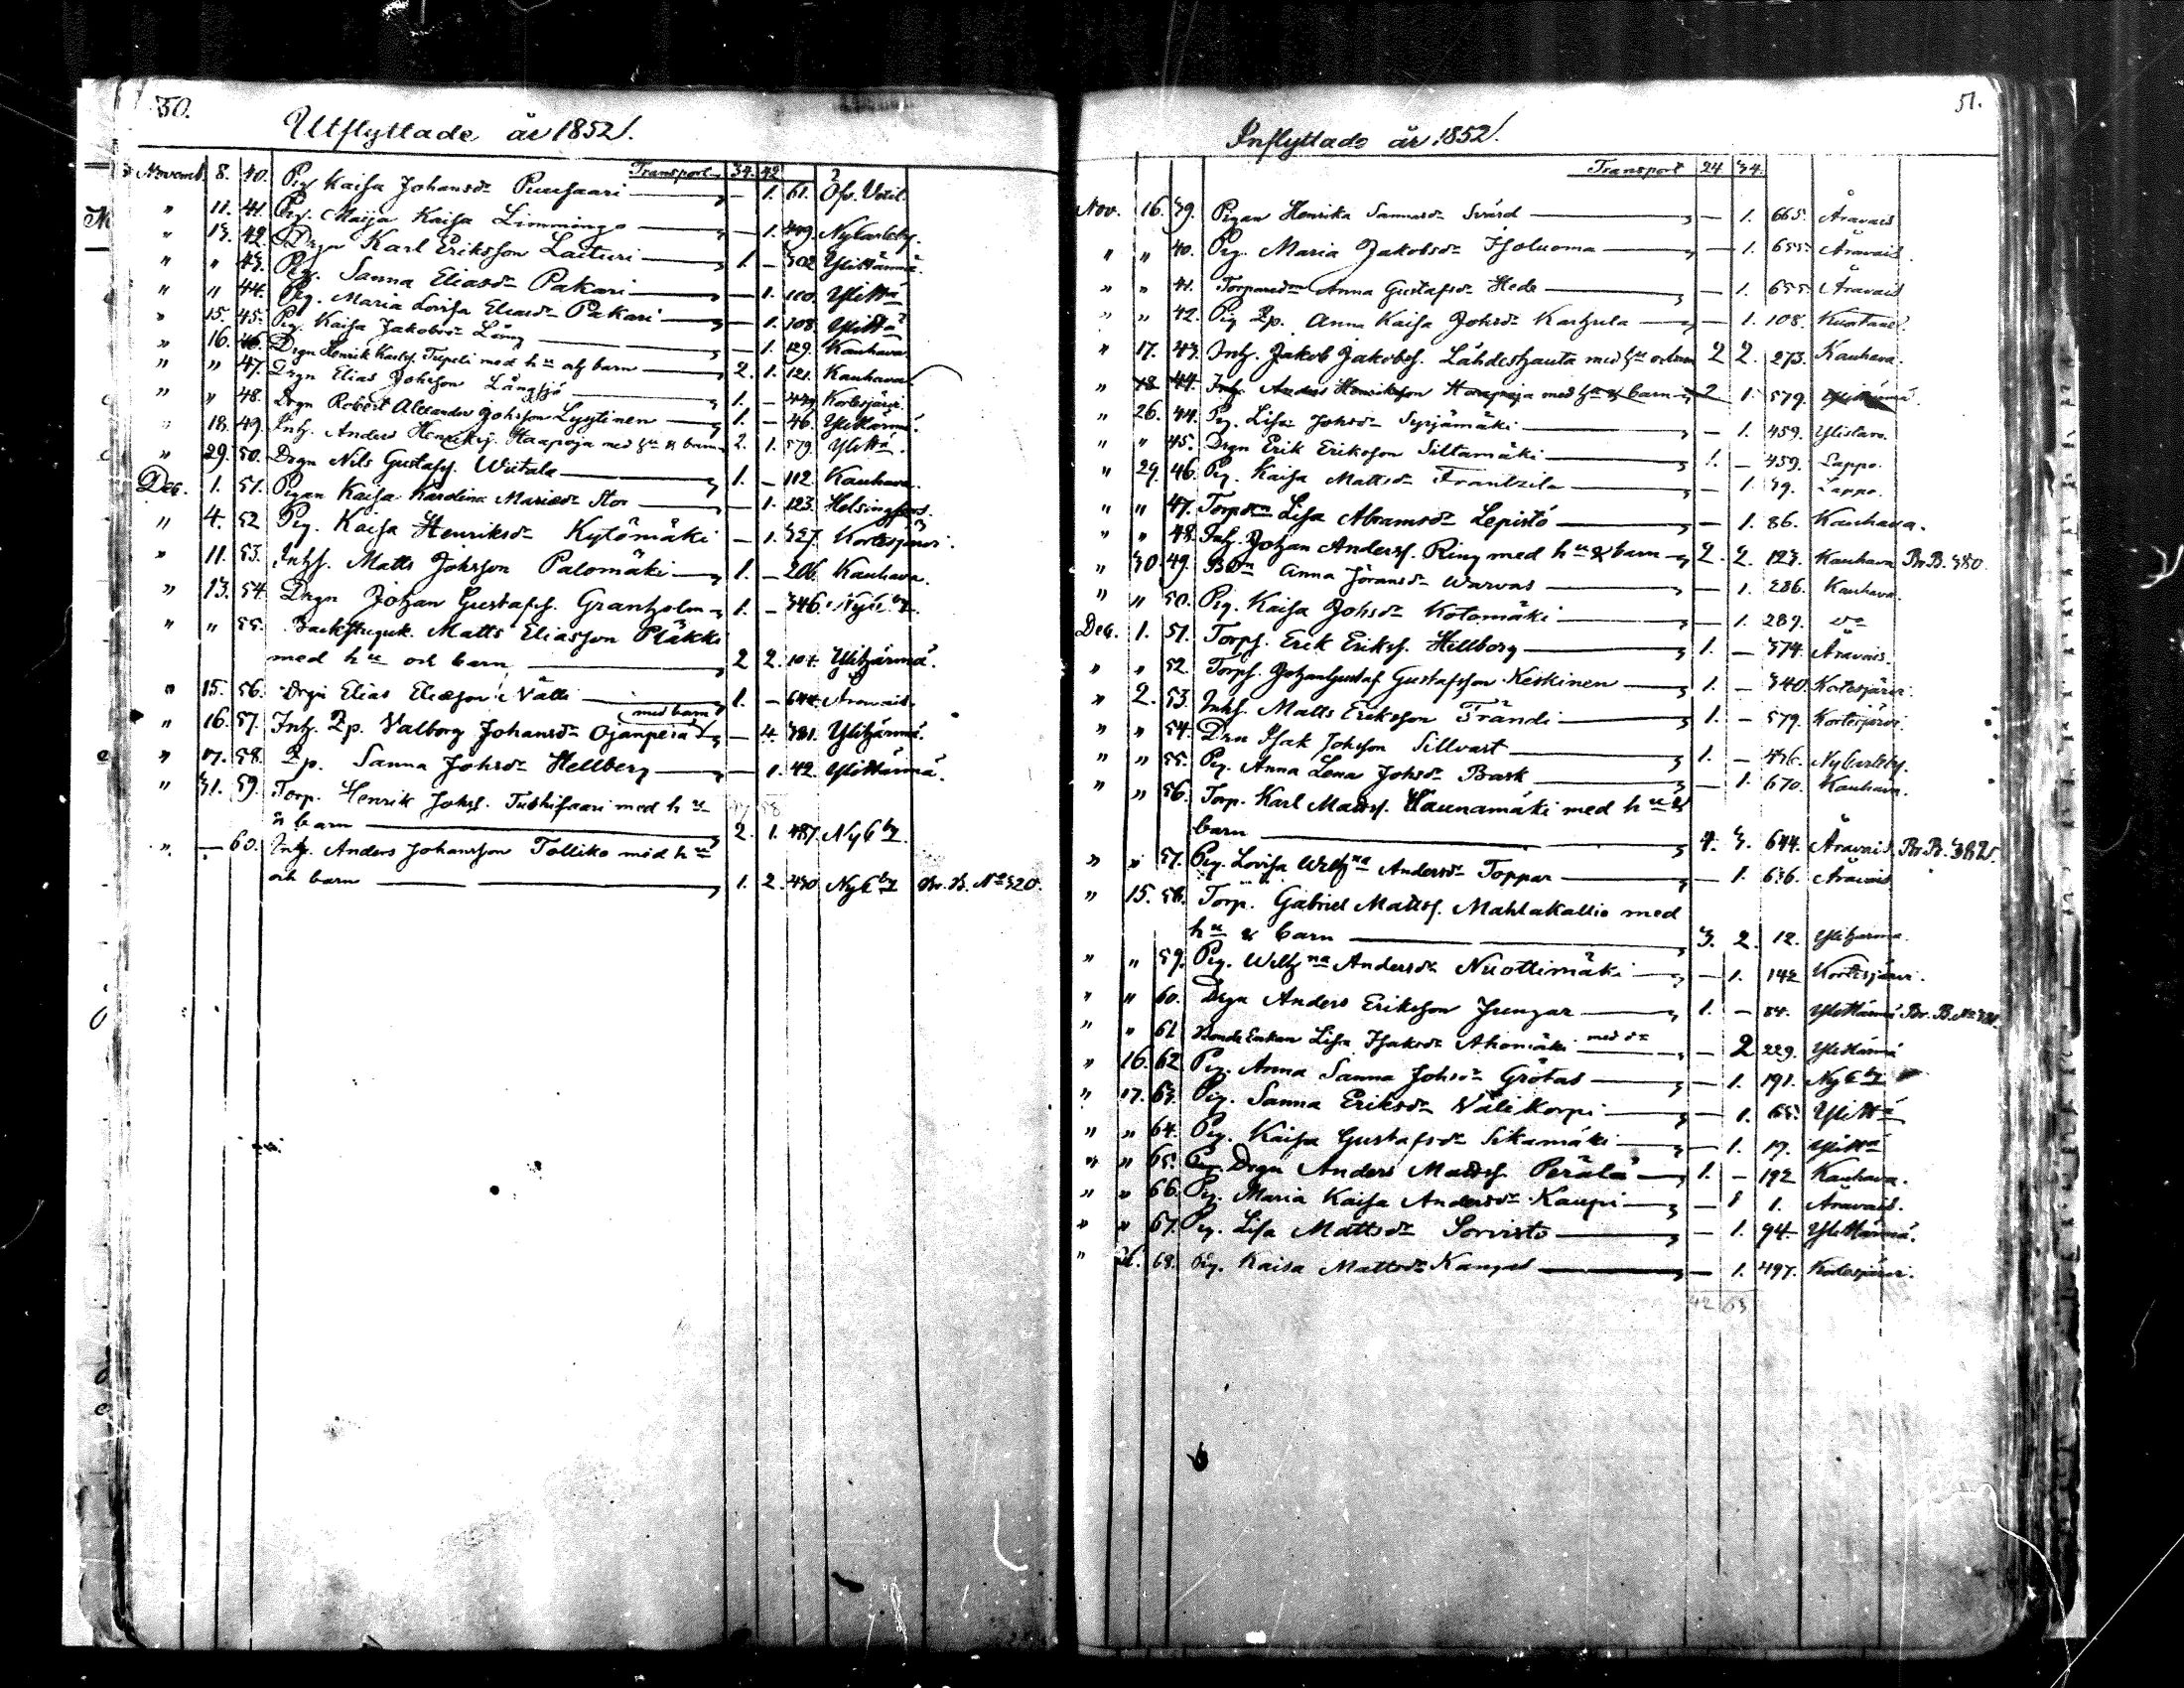 50.
Utflyttade år 1852.
Transport 34. 42
Novemb. 8. 40. Pig. Kaisa Johansdr Puusaari — 1. 61. Öfv. Vetil.
" 11. 41. Pig. Maija Kaisa Limminge — 1. 449. Nykarleby.
" 13. 42. Drgn Karl Eriksson Laituri 1. — 302 Ylihärmä.
" " 43. Pig. Sanna Eliasdr Pakari — 1. 100. Ylihä
" " 44. Pig. Maria Lovisa Eliasdr Pakari — 1. 108. Ylihä
" 15. 45. Pig. Kaisa Jakobsdr Lång — 1. 129. Kauhava
" 16. 46. Drgn Henrik Karlss. Tupeli med hu och barn 2. 1. 121. Kauhava
" " 47. Drgn Elias Johsson Långsjö 1. — Kortesjärvi.
" " 48. Drgn Robert Alexander Johsson Lyytinen 1. — 46. Ylihärmä.
" 18. 49. Inh. Anders Henrikss. Haapoja med hu & barn 2. 1. 579. Ylihä.
" 29. 50. Drgn Nils Gustafss. Wiitala 1. — 112. Kauhava.
Dec. 1. 51. Pigan Kaisa Karolina Mariedr Stor — 1. 123. Helsingfors.
" 4. 52 Pig. Kaisa Henriksdr Kytömäki — 1. 327. Kortesjärvi.
" 11. 53. Inhs. Matts Johsson Palomäki 1. — 206. Kauhava.
" 13. 54. Drgn Johan Gustafss. Granholm 1. — 346. NyCby.
" " 55. Backstuguk. Matts Eliasson Pläkki
med hu och barn 2 2. 107. Ylihärmä.
" 15. 56. Drgn Elias Eliasson Nälli 1. — 644. Åravais.
" 16. 57. Inh. Ep. Valborg Johansdr Ojanperä med barn — 4. 381. Ylihärmä.
" 17. 58. Ep. Sanna Johsdr Hellberg — 1. 42. Ylihärmä.
" 31. 59. Torp. Henrik Johss. Tuskisaari med hu
& barn 2. 1. 487. NyCby.
" — 60. Inh. Anders Johansson Tolliko med hu
och barn 1. 2. 430 NyCby Br. B. No 320.
51.
Inflyttade år 1852.
Transport 24 34.
Nov. 16. 39. Pigan Henrika Samuelsdr Svärd — 1. 665. Åravais
" " 40. Pig. Maria Jakobsdr Isoluoma — 1. 655. Åravais.
" " 41. Torparedr Anna Gustafsdr Hede — 1. 655. Åravais
" " 42. Pig Ep. Anna Kaisa Johsdr — 1. 108. Kuortane.
" 17. 43. Inh. Jakob Jakobss. Lähdeshauta med hu o barn 2 2. 273. Kauhava.
" 18 44. Inh. Anders Henriksson Haapoja med hu & barn 2 1. 579. Ylihärmä.
" 26. 44. Pig. Lisa Johsdr Syrjämäki — 1. 459. Ylistaro.
" " 45. Drgn Erik Eriksson Siltamäki 1. — 459. Lappo.
" 29. 46. Pig. Kaisa Mattsdr Frantzila — 1. 39. Lappo.
" " 47. Torpdr Lisa Abramsdr Lepistö — 1. 86. Kauhava.
" " 48. Inh. Johan Anderss. Ring med hu & barn 2. 2. 123. Kauhava Br. B. 380.
" 30 49. Bdr Anna Göransdr Warvas — 1. 286. Kauhava.
" " 50. Pig. Kaisa Johsdr Kotomäki — 1. 289. do
Dec. 1. 51. Torps. Erik Erikss. Hillborg 1. — 374. Åravais.
" " 52. Torps. Johan Gustaf Gustafsson Keskinen 1. — 340. Kortesjärvi.
" 2. 53. Inhs. Matts Eriksson Frändi 1. — 579. Kortesjärvi.
" " 54. Drn Isak Johsson Sillvast 1. — 476. Nykarleby.
" " 55. Pig. Anna Lena Johsdr Bask — 1. 670. Kauhava.
" " 56. Torp. Karl Mattss. Haunamäki med hu &
barn 4. 3. 644. Åravais Br. B. 382.
" " 57. Pig. Lovisa Welhna Andersdr Toppar — 1. 636. Åravais
" 15. 58. Torp. Gabriel Mattss. Mahlakallio med
hu & barn 3. 2. 12. Ylihärmä.
" " 59. Pig. Welhna Andersdr Nuottimäki — 1. 142 Kortesjärvi.
" " 60. Drgn Anders Eriksson Jungar 1. — 84. Ylihärmä Br. B. No 381.
" " 61 Bonde Enkan Lisa Isaksdr Ahomäki med dr — 2 229. Ylihärmä
" 16. 62. Pig. Anna Sanna Johsdr Grötas — 1. 191. NyCby
" 17. 63. Pig. Sanna Eriksdr Välikorpi — 1. 65. Ylihä
" " 64. Pig. Kaisa Gustafsdr Sikamäki — 1. 17. Ylihä
" " 65. Drgn Anders Mattss. Perälä 1. — 192 Kauhava.
" " 66. Pig. Maria Kaisa Andersdr Kaupi — 1 1. Åravais.
" " 67. Pig. Lisa Mattsdr Sorvisto — 1. 94. Ylihärmä.
" 31. 68. Pig. Kaisa Mattsdr Kangas — 1. 497. Kortesjärvi.
42 63